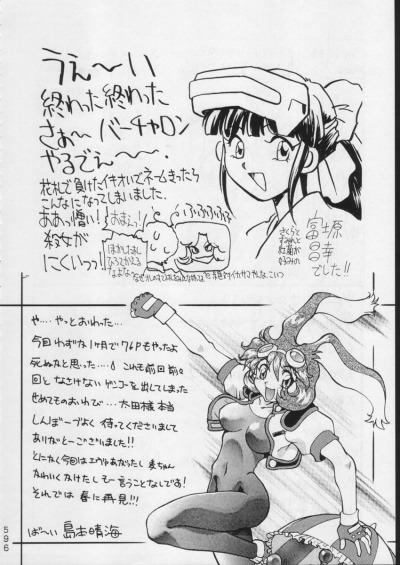 うえ〜い
終わった終わった
さぁ〜 バーチャロン
やるでぇ〜〜.
花札で負けたイキオイでネームきったら
こんなになってしまいました.
ああっ憎い!
殺女が
にくいっっ!
おまえっ!
ふふふふふ
さくらと
富士原
昌幸
でした!!
や‥‥やっとおわった‥‥
今回わずか1ヶ月で76Pもやったよ
死ぬかと思った‥‥ これも前回 前々
回と なさけないゲンコーを出してしまった
せめてものおわびで‥‥ 太田様 本当
しんぼーづよく 待ってくださいまして
ありがとーございました!!
とにかく今回は
かわいくかけたし もー言うことなしです!
それでは 春に再見!!!
ば〜い 島本晴海
596